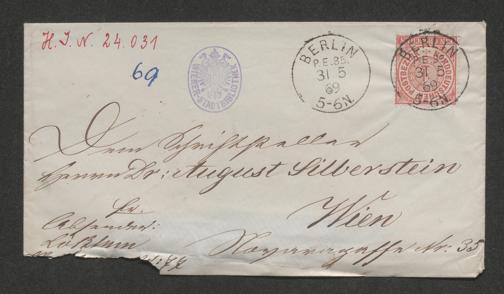 H. I. N. 24.031
69
BERLIN
P.E.35.
31 5
69
5-6N.
BERLIN
P.E.35.
31 5
69
5-6N.
Dem Schriftsteller
Herrn Dr: August Silberstein
fr.
Wien
Absender:
Novaragasse Nr: 35